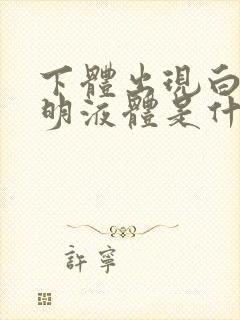 下體出現白
明液體是什
許寧